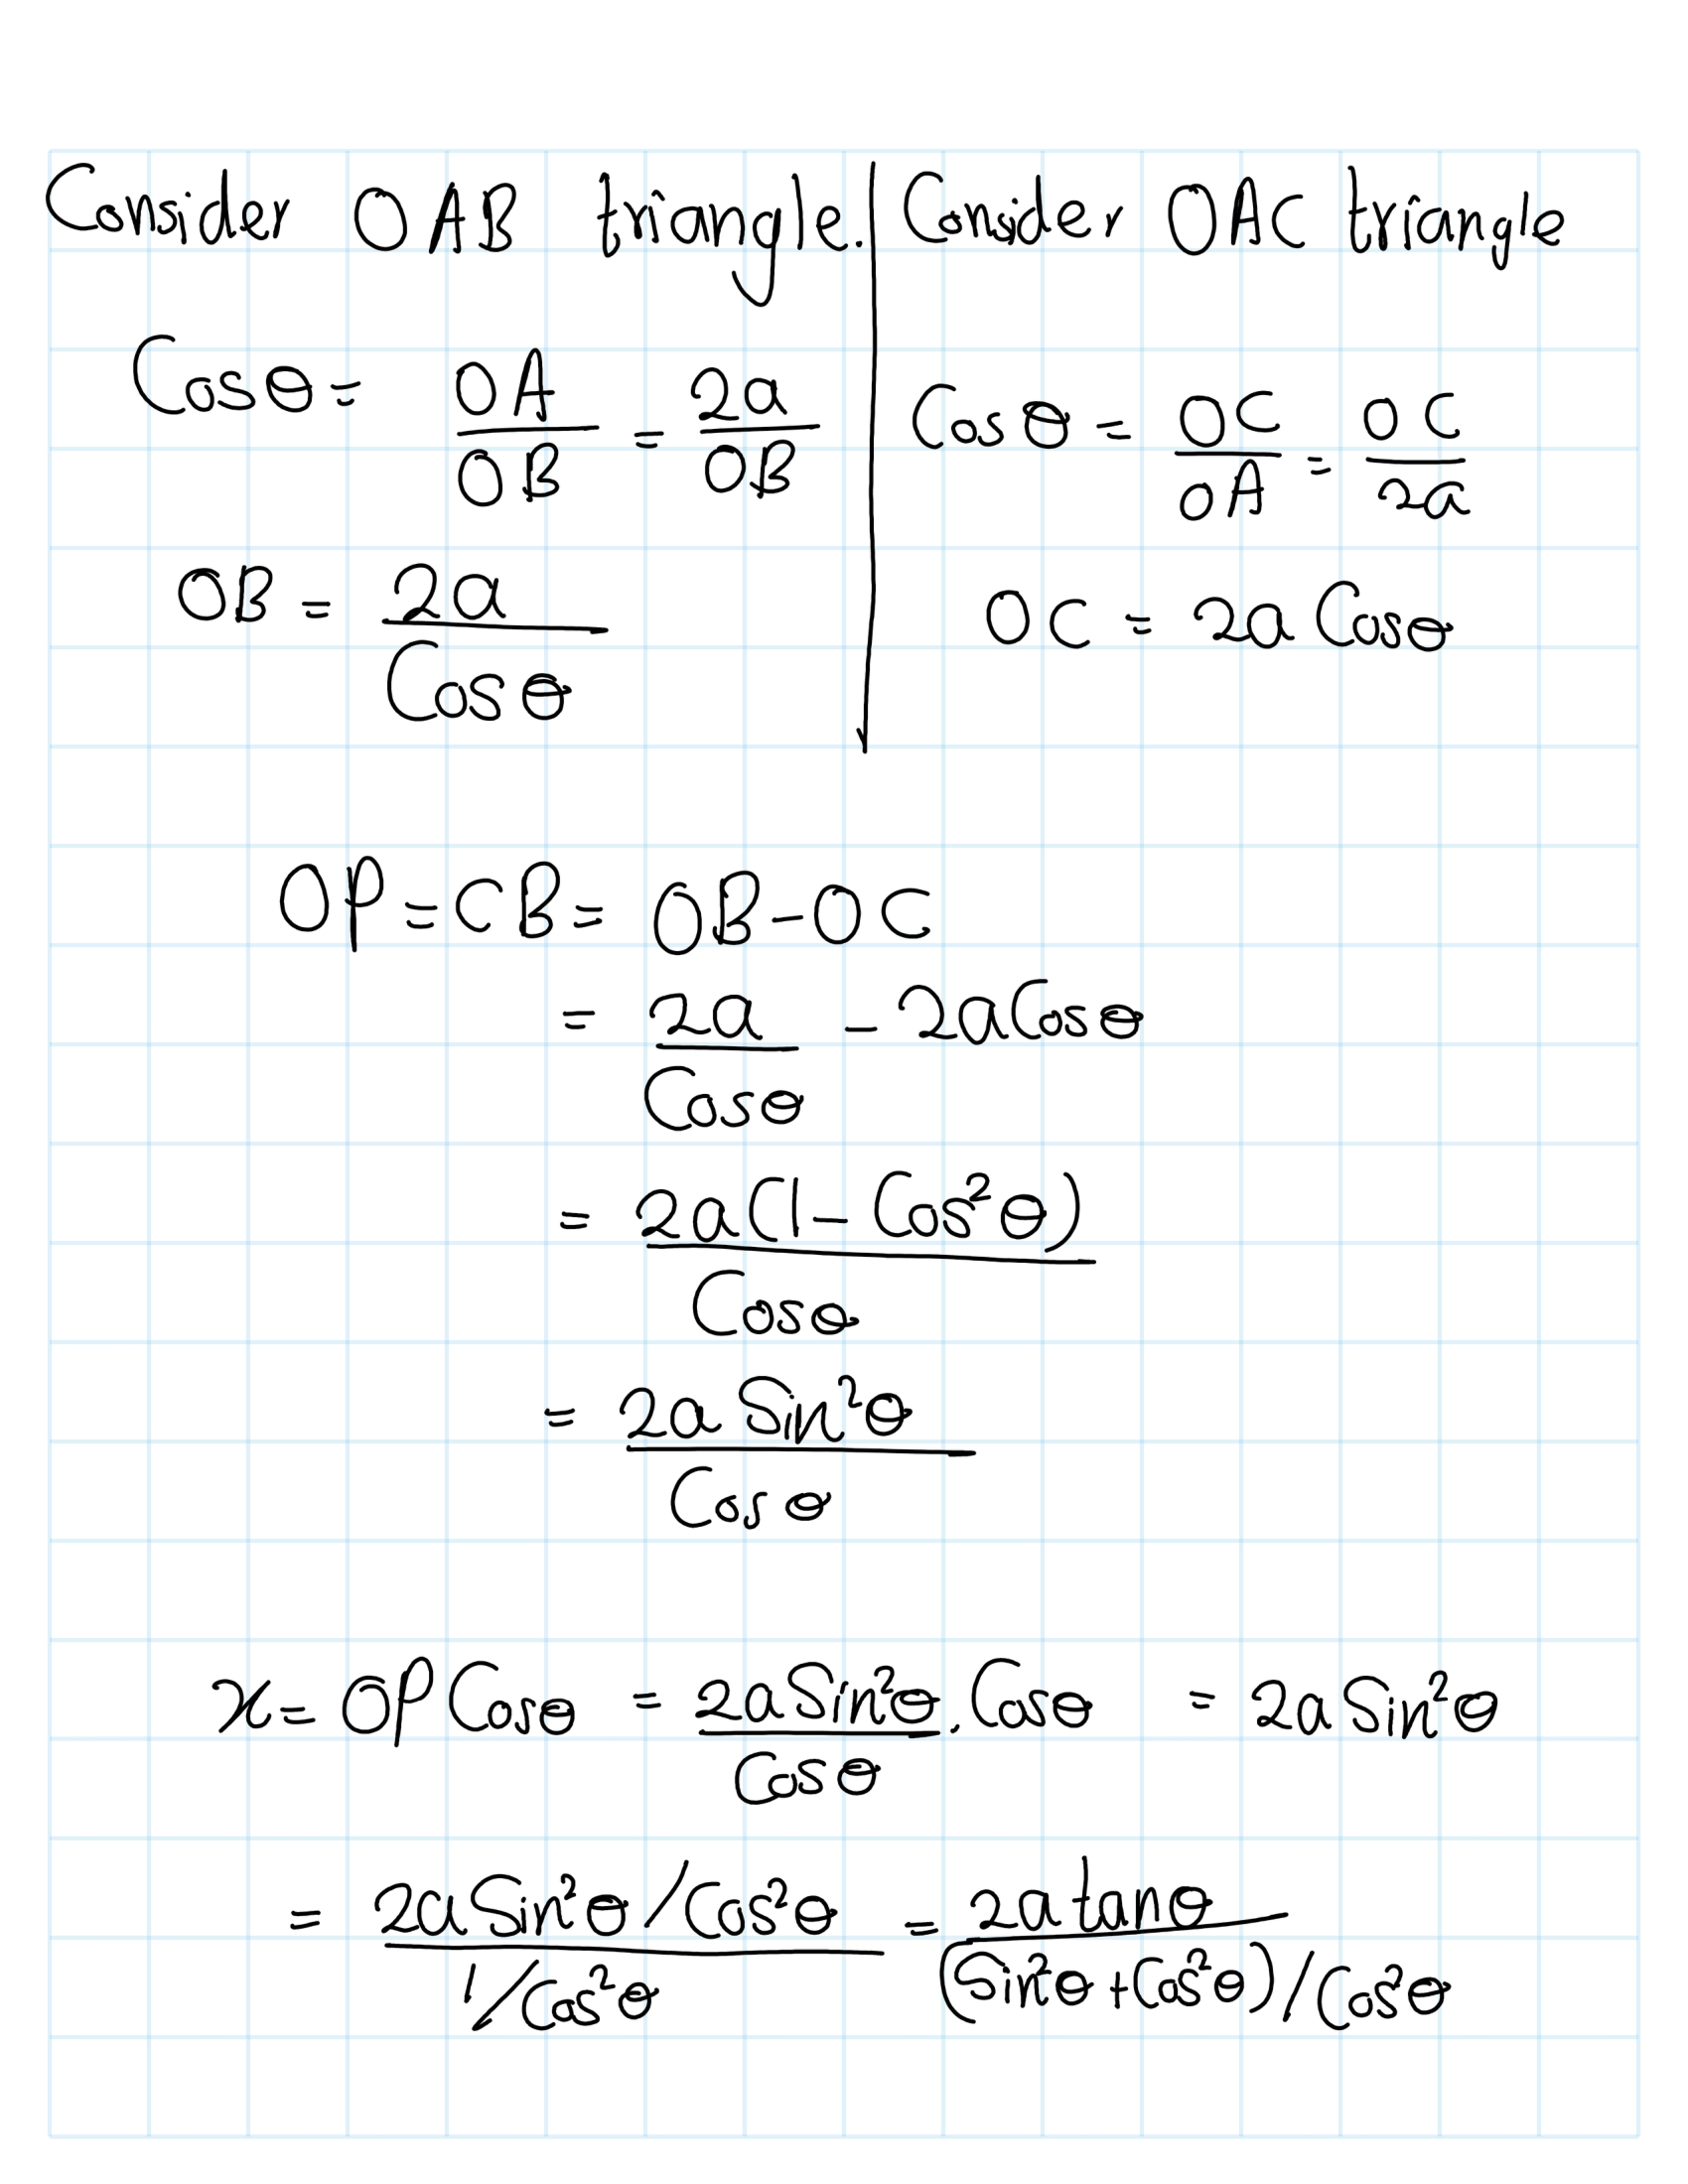 Consider OAB triangle.
Cosθ = OA/OB = 2a/OB
OB = 2a/Cosθ
Consider OAC triangle
Cosθ = OC/OA = OC/2a
OC = 2a Cosθ
OP = CB = OB - OC
= 2a/Cosθ - 2aCosθ
= 2a(1 - Cos²θ)/Cosθ
= 2a Sin²θ/Cosθ
x = OP Cosθ = 2a Sin²θ/Cosθ . Cosθ = 2a Sin²θ
= (2a Sin²θ/Cos²θ)/(1/Cos²θ) = 2a tanθ/((Sin²θ + Cos²θ)/Cos²θ)